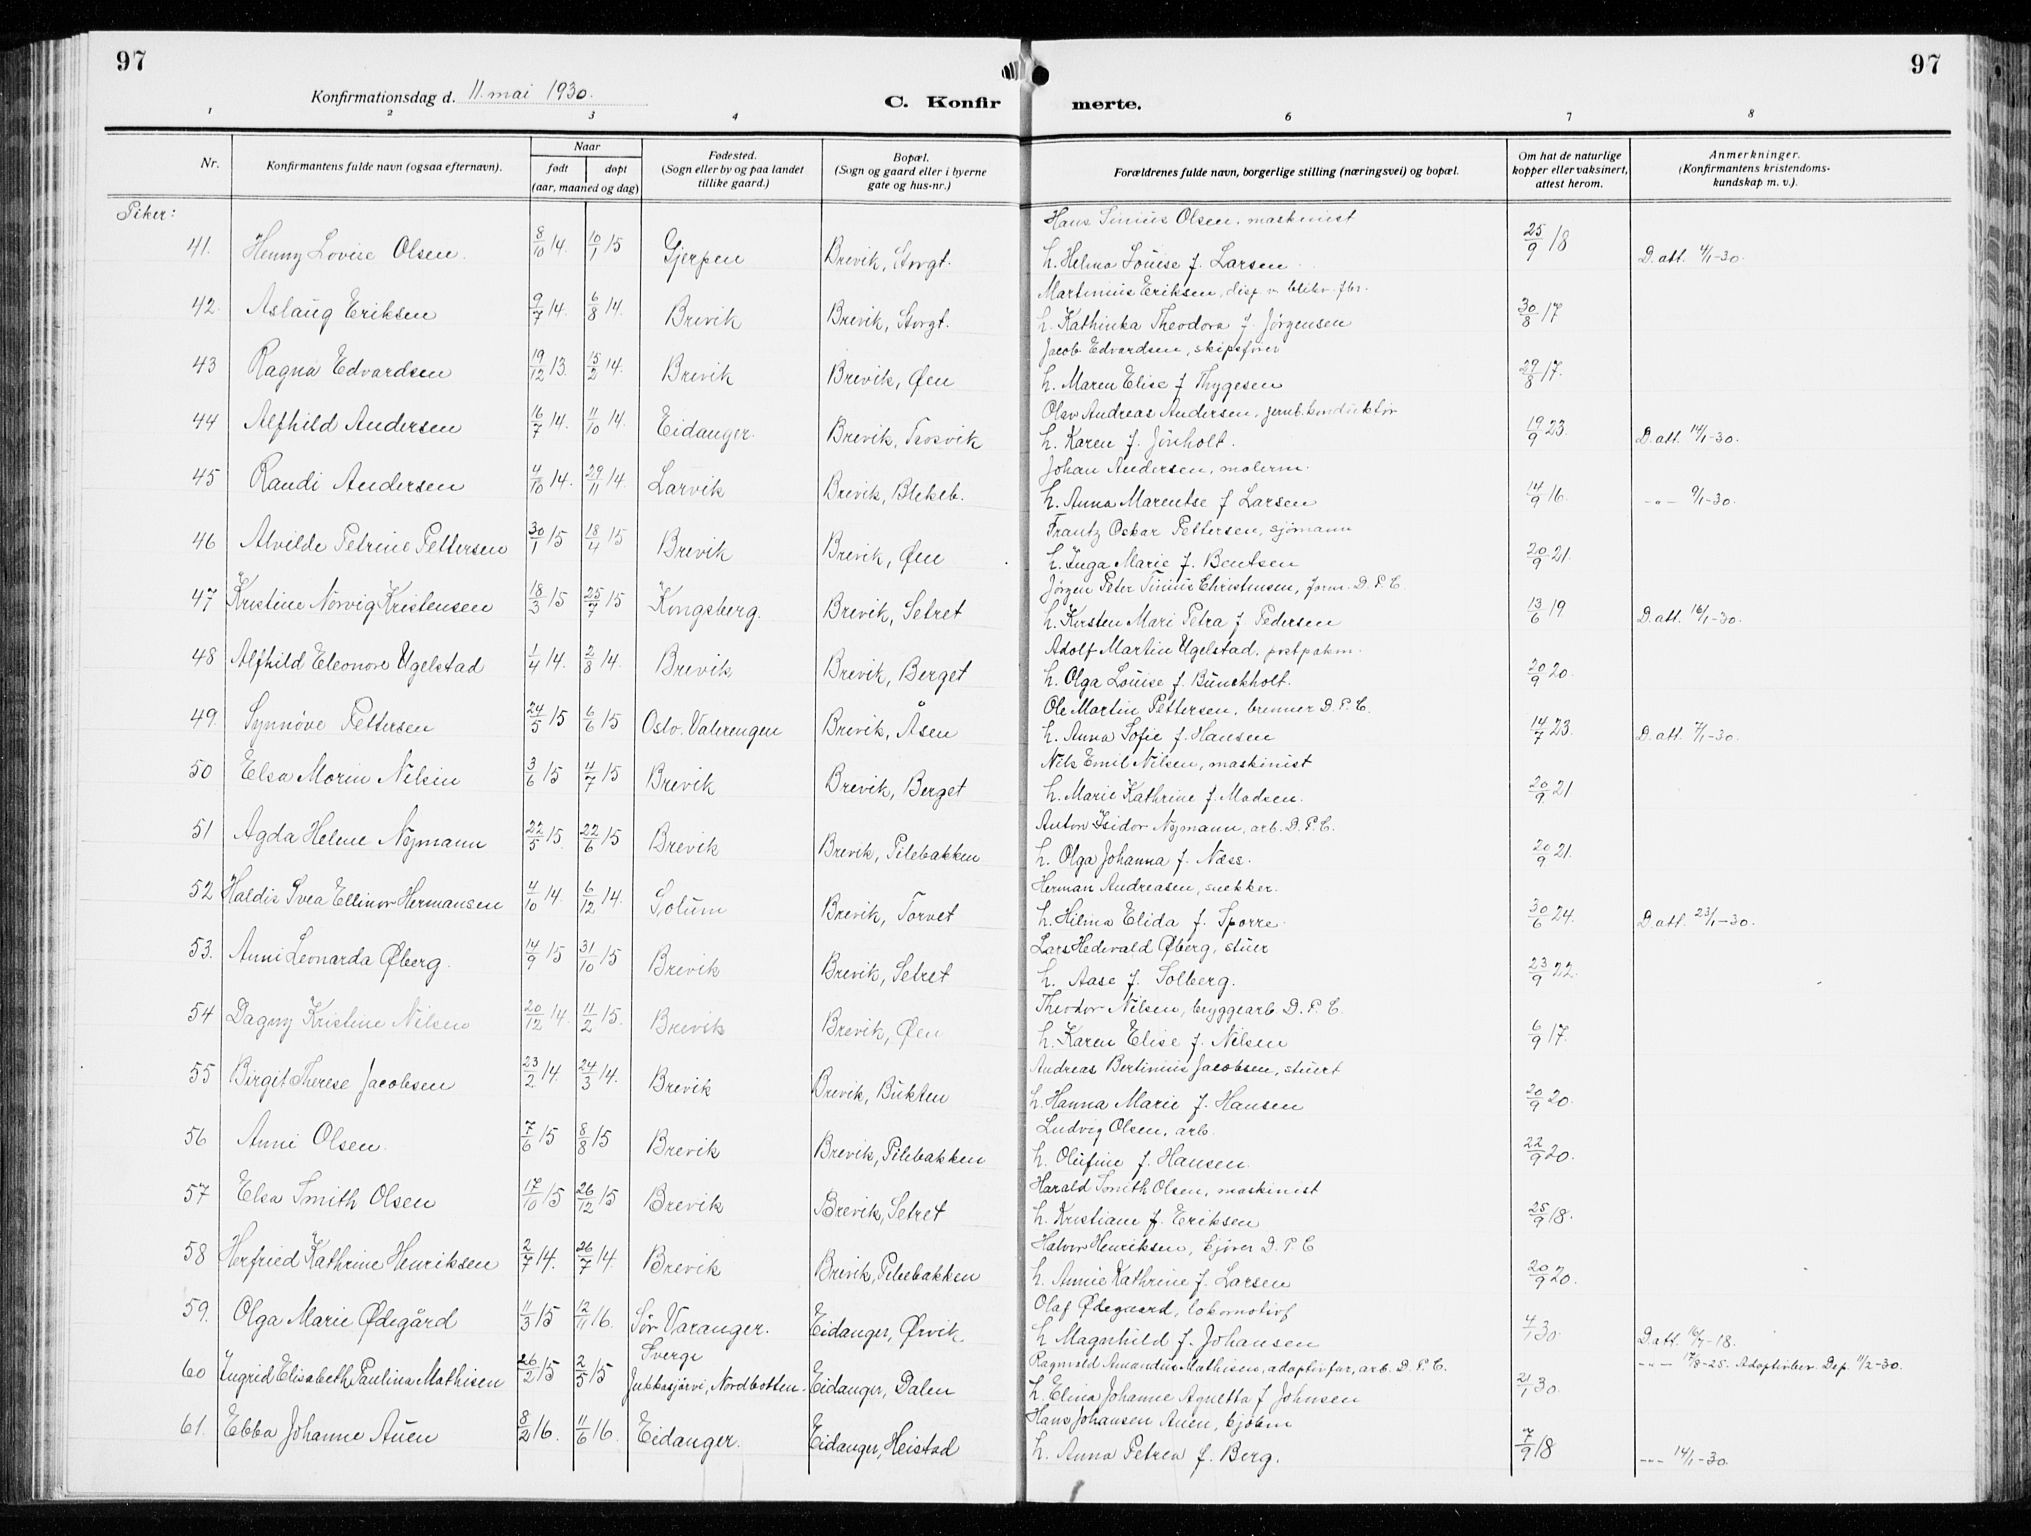 97
97
Konfirmationsdag d. 11. mai 1930.
C. Konfir merte.
1 2 3 4 5 6 7 8
Nr. Konfirmantens fulde navn (ogsaa efternavn). Naar født døpt (aar, maaned og dag) Fødested. (Sogn eller by og paa landet tillike gaard.) Bopæl. (Sogn og gaard eller i byerne gate og hus-nr.) Forældrenes fulde navn, borgerlige stilling (næringsvei) og bopæl. Om hat de naturlige kopper eller vaksinert, attest herom. Anmerkninger. (Konfirmantens kristendoms-kundskap m. v.).
Piker:
Hans Sinius Olsen, maskinist
41. Henny Lovise Olsen. 8/10 14. 10/1 15 Gjerpen Brevik, Storgt. h. Helma Louise f. Larsen 25/9 18 D. att. 4/1-30.
Martinius Eriksen, disp.
42. Aslaug Eriksen 9/7 14. 6/8 14. Brevik Brevik, Storgt. h. Kathinka Theodora f. Jørgensen 30/8 17
Jacob Edvardsen, skipsfører
43 Ragna Edvardsen 19/12 13. 15/2 14. Brevik Brevik, Øen h. Maren Elise f Thygesen 29/8 17.
Olav Andreas Andersen, jernb. konduktør
44 Alfhild Andersen 16/7 14. 11/10 14. Eidanger. Brevik, Trosvik h. Karen f. Jönholt. 19/9 23. D. att. 14/1-30.
Johan Andersen, malerm.
45 Randi Andersen 4/10 14. 29/11 14. Larvik Brevik, Blekeb. h. Anna Marentse f Larsen 14/9 16. -"- 9/1-30.
Frantz Oskar Pettersen, sjömann
46 Alvilde Petrine Pettersen 30/1 15 18/4 15 Brevik Brevik, Øen h. Inga Marie f. Bentsen 20/9 21.
Jørgen Peter Tinius Christensen, form. D. P. C.
47 Kristine Norvig Kristensen 18/3 15 25/7 15 Kongsberg. Brevik, Setret h. Kirsten Mari Petra f Pedersen 13/6 19 D. att. 16/1-30.
Adolf Martin Ugelstad, postpakm.
48 Alfhild Eleonore Ugelstad 1/4 14. 2/8 14. Brevik Brevik, Berget h. Olga Louise f. Bunckholt. 20/9 20.
Ole Martin Pettersen, brenner D. P. C.
49. Synnöve Pettersen 24/5 15 6/6 15 Oslo. Valerengen Brevik, Åsen h. Anna Sofie f. Hansen 14/7 23. D. att. 7/1-30.
Nils Emil Nilsen, maskinist
50 Elsa Marin Nilsen 3/6 15 4/7 15 Brevik Brevik, Berget h. Marie Kathrine f. Madsen. 20/9 21
Anton Isidor Nymann, arb. D. P. C.
51 Agda Helene Nymann 22/5 15. 22/6 15 Brevik Brevik, Pilebakken h. Olga Johanna f. Næss. 20/9 21.
Herman Andreasen, snekker.
52 Haldis Svea Ellinor Hermansen 4/10 14. 6/12 14. Solum Brevik, Torvet h. Hilma Elida f. Sporre 30/6 24. D. att. 23/1-30.
Lars Hedevald Øberg, stuer
53. Anni Leonarda Øberg. 14/9 15 31/10 15 Brevik Brevik, Setret h. Aase f. Solberg. 23/9 22.
Theodor Nilsen, bryggearb D. P. C.
54 Dagny Kristine Nilsen 20/12 14. 11/2 15. Brevik Brevik, Øen h. Karen Elise f. Nilsen 6/9 17.
Andreas Bertinius Jacobsen, stuert
55 Birgit Therese Jacobsen 23/2 14. 24/3 14. Brevik Brevik, Bukten h. Hanna Marie f. Hansen 20/9 20.
Ludvig Olsen, arb.
56 Anni Olsen. 7/6 15 8/8 15 Brevik Brevik, Pilebakken h. Olufine f. Hansen 22/9 20.
Harald Smith Olsen, maskinist
57 Elsa Smith Olsen 17/10 15 26/12 15 Brevik Brevik, Setret h. Kristiane f. Eriksen 25/9 18.
Halvor Henriksen, kjører D. P. C
58 Herfried Kathrine Henriksen 2/7 14. 26/7 14. Brevik Brevik, Pilebakken h. Annie Kathrine f. Larsen 20/9 20.
Olaf Ødegaard, lokomotivf
59. Olga Marie Ødegård 11/3 15 12/11 16. Sör Varanger. Eidanger, Ørvik. h Magnhild f. Johansen 4/1 30. D att. 16/7-18.
Sverge Ragnvald Amandus Mathisen, adoptivfar, arb. D. P. C. -"- 17/8-25. Adoptivbev. Dep. 11/2-30.
60 Ingrid Elisabeth Paulina Mathisen 26/2 15 2/5 15 Jukkasjärvi, Nordbotten. Eidanger, Dalen h. Elina Johanne Agnetta f Johnsen 21/1 30.
Hans Johansen Auen, kjöbm
61. Ebba Johanne Auen 8/2 16. 11/6 16. Eidanger. Eidanger, Heistad h. Anna Petrea f. Berg. 7/9 18 -"- 14/1-30.